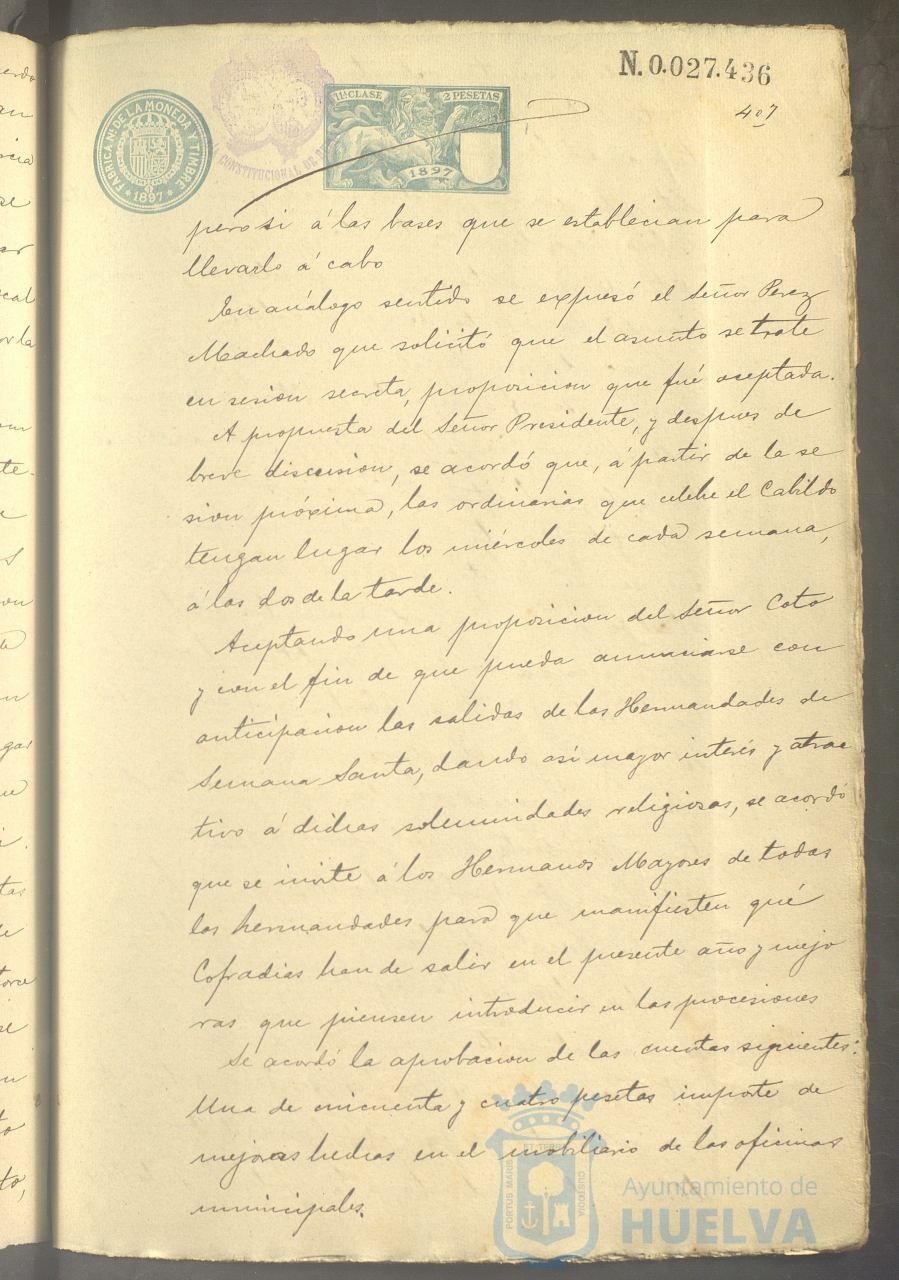 N.0.027.436
407
FABRICA Nal DE LA MONEDA Y TIMBRE
1897
CONSTITUCIONAL DE
11ª CLASE
2 PESETAS
1897
pero si á las bases que se establecian para
llevarlo á cabo
En análogo sentido se expresó el Señor Perez
Machado que solicitó que el asunto se trate
en sesion secreta, proposicion que fué aceptada.
A propuesta del Señor Presidente, y despues de
breve discusion, se acordó que, á partir de la se
sion próxima, las ordinarias que celebre el Cabildo
tengan lugar los miércoles de cada semana,
á las dos de la tarde.
Aceptando una proposicion del Señor Coto
y con el fin de que pueda anunciarse con
anticipacion las salidas de las Hermandades de
Semana Santa, dando asi mayor interés y atrac
tivo á dichas solemnidades religiosas, se acordó
que se invite á los Hermanos Mayores de todas
las hermandades para que manifiesten qué
Cofradias han de salir en el presente año y mejo
ras que piensen introducir en las procesiones
Se acordó la aprobacion de las cuentas siguientes:
Una de cincuenta y cuatro pesetas importe de
mejoras hechas en el mobiliario de las oficinas
municipales.
PORTUS MARIS ET TERRÆ CUSTODIA
Ayuntamiento de
HUELVA